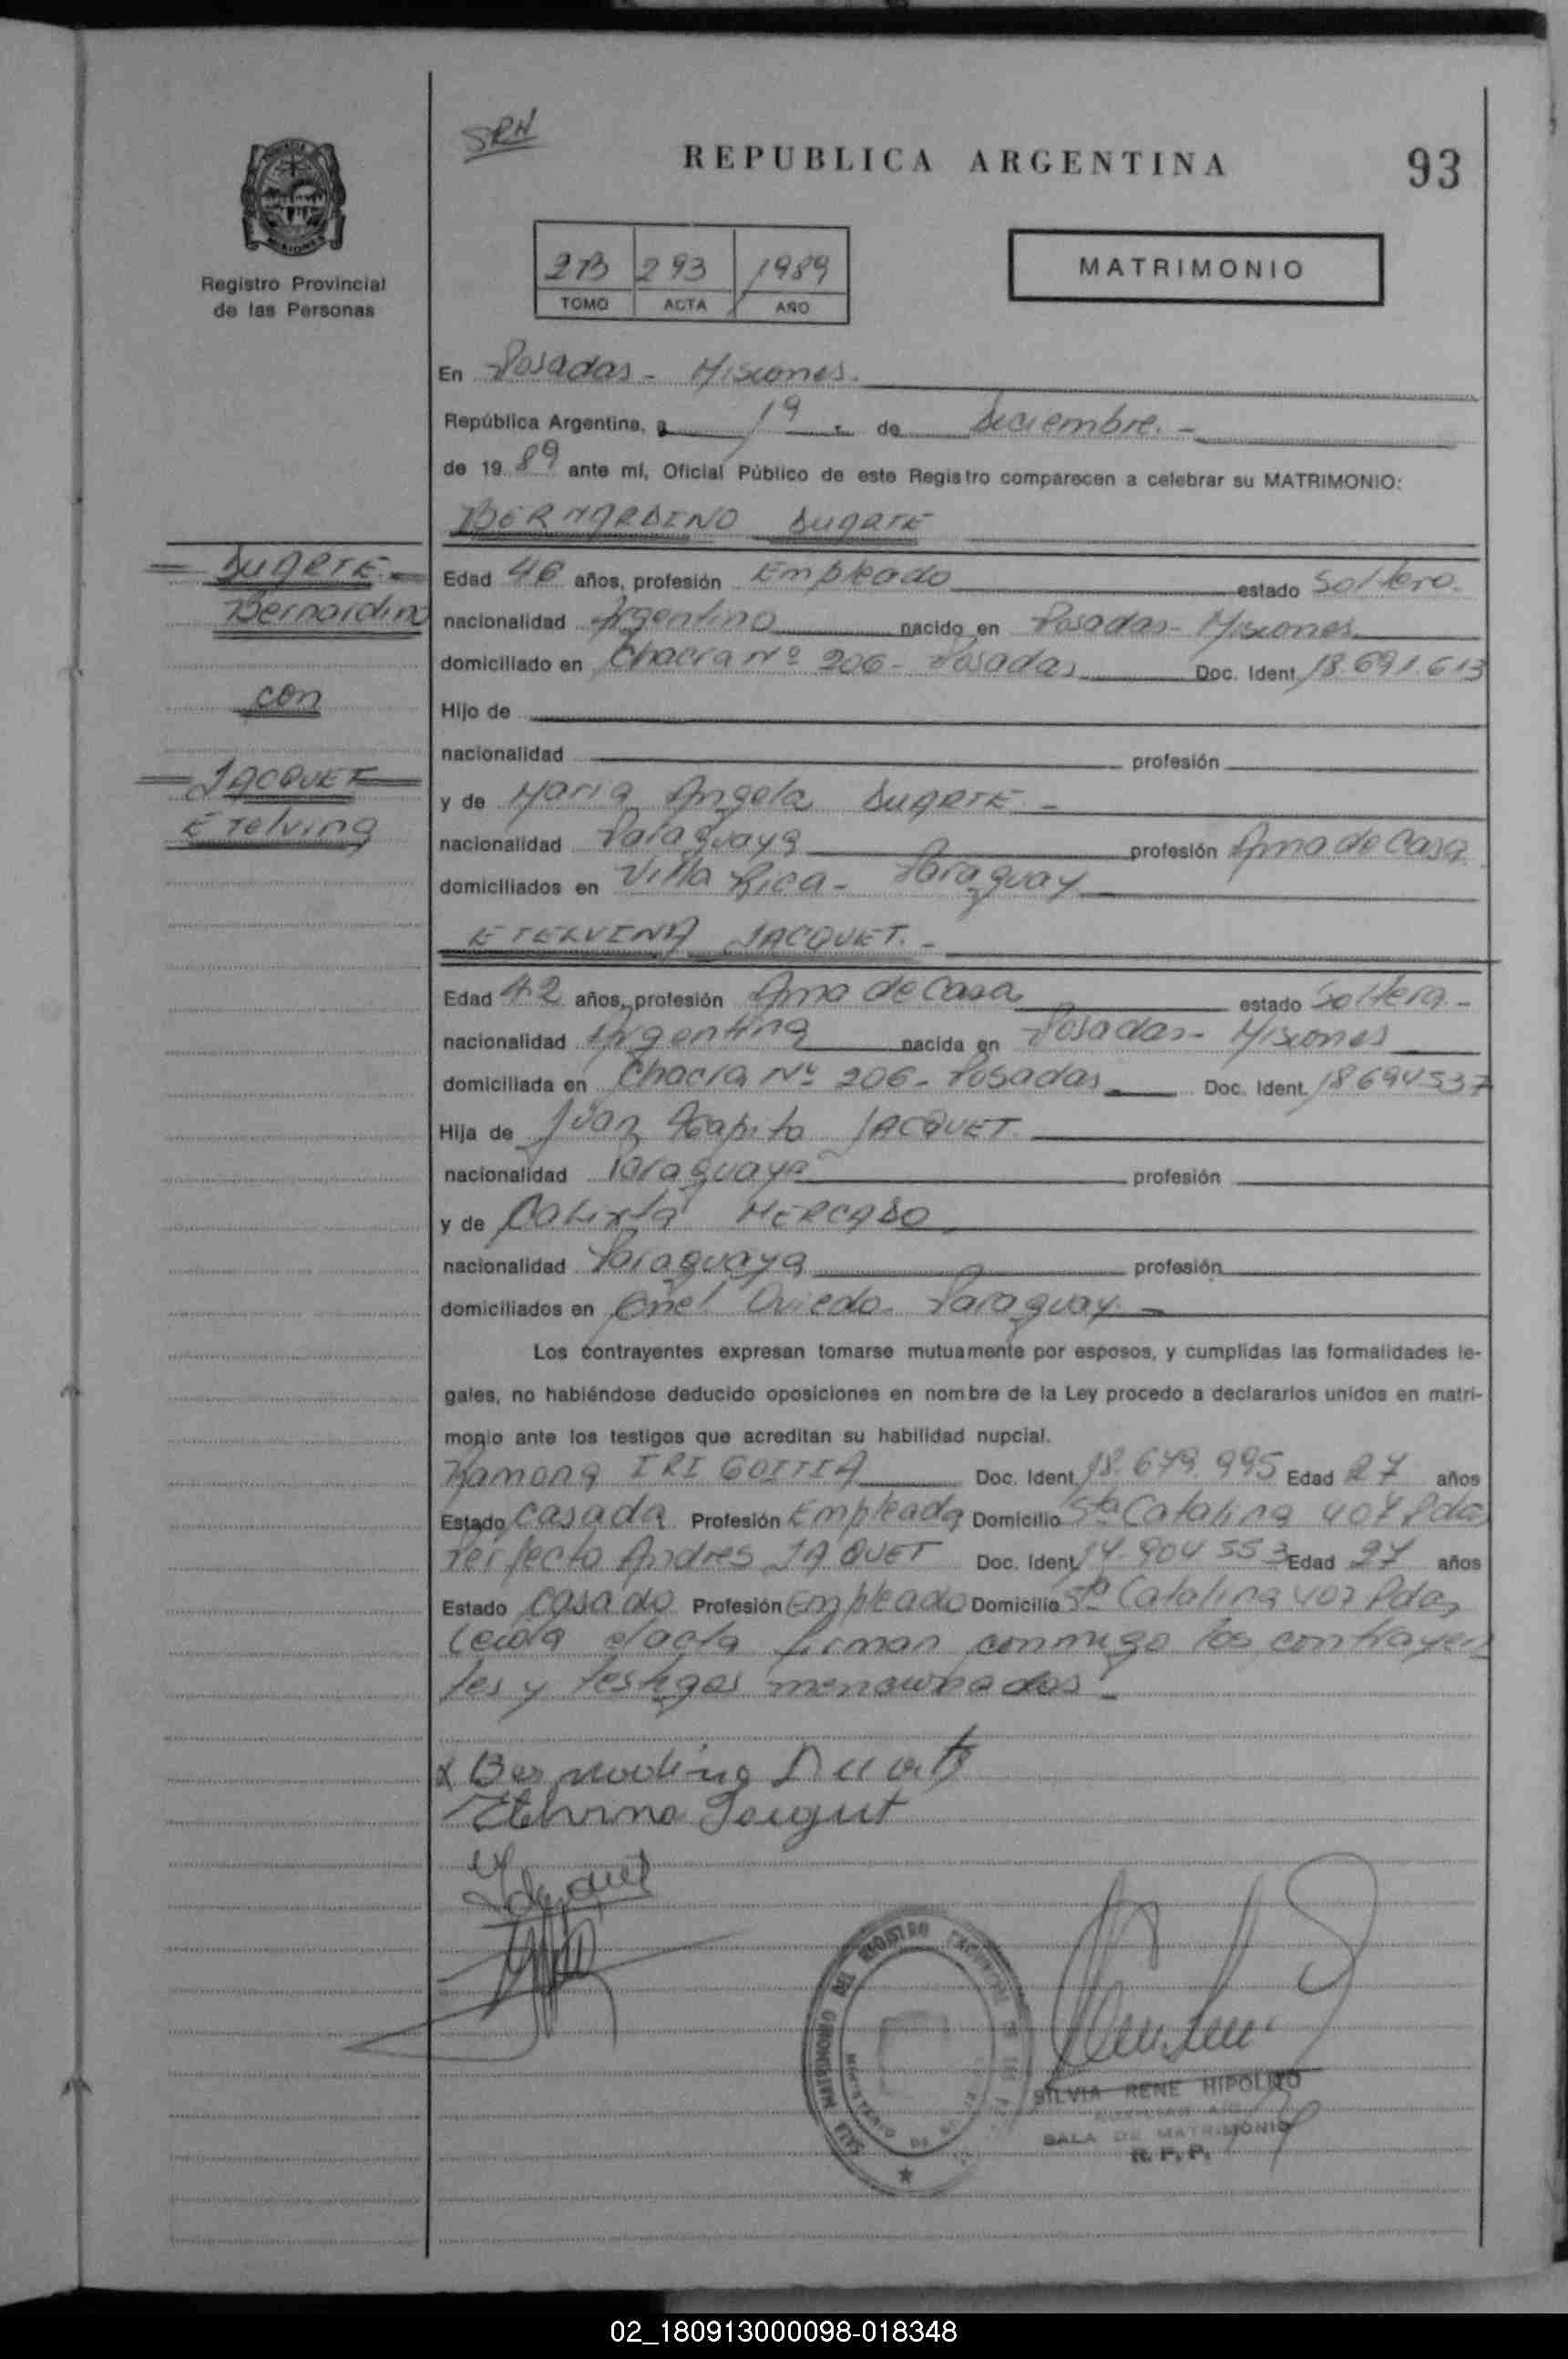 SRH
REPUBLICA ARGENTINA
93
Registro Provincial
de las Personas
2B 293 1989
TOMO ACTA AÑO
MATRIMONIO
En Posadas - Misiones.
República Argentina, a 19 de diciembre. -
de 19 89 ante mí, Oficial Público de este Registro comparecen a celebrar su MATRIMONIO:
BERNARDINO DUARTE
DUARTE
Bernardino
con
JACQUET
Etelvina
Edad 46 años, profesión Empleado estado Soltero.
nacionalidad Argentino nacido en Posadas - Misiones
domiciliado en Chacra Nº 206 - Posadas Doc. Ident. 18.691.613
Hijo de
nacionalidad profesión
y de Maria Angela DUARTE. -
nacionalidad Paraguaya profesión Ama de Casa
domiciliados en Villa Rica - Paraguay
ETELVINA JACQUET. -
Edad 42 años, profesión Ama de Casa estado Soltera. -
nacionalidad Argentina nacida en Posadas - Misiones
domiciliada en Chacra Nº 206 - Posadas Doc. Ident. 18694537
Hija de Juan Agapito JACQUET.
nacionalidad Paraguaya profesión
y de Calixta MERCADO
nacionalidad Paraguaya profesión
domiciliados en Cnel Oviedo - Paraguay. -
Los contrayentes expresan tomarse mutuamente por esposos, y cumplidas las formalidades le-
gales, no habiéndose deducido oposiciones en nombre de la Ley procedo a declararlos unidos en matri-
monio ante los testigos que acreditan su habilidad nupcial.
Ramona IRIGOITIA Doc. Ident. 18.679.995 Edad 27 años
Estado Casada Profesión Empleada Domicilio Sta Catalina 407 Pdas
Perfecto Andres JAQUET Doc. Ident. 14.904553 Edad 27 años
Estado Casado Profesión Empleado Domicilio Sta Catalina 407 Pdas
Leida el acta firman conmigo los contrayen
tes y testigos mencionados -
x Bernardino Duarte
Etelvina Jaquet
SALA MATRIMONIO DEL REGISTRO PROVINCIAL
SILVIA RENE HIPOLITO
SALA DE MATRIMONIO
R. P. P.
02_180913000098-018348